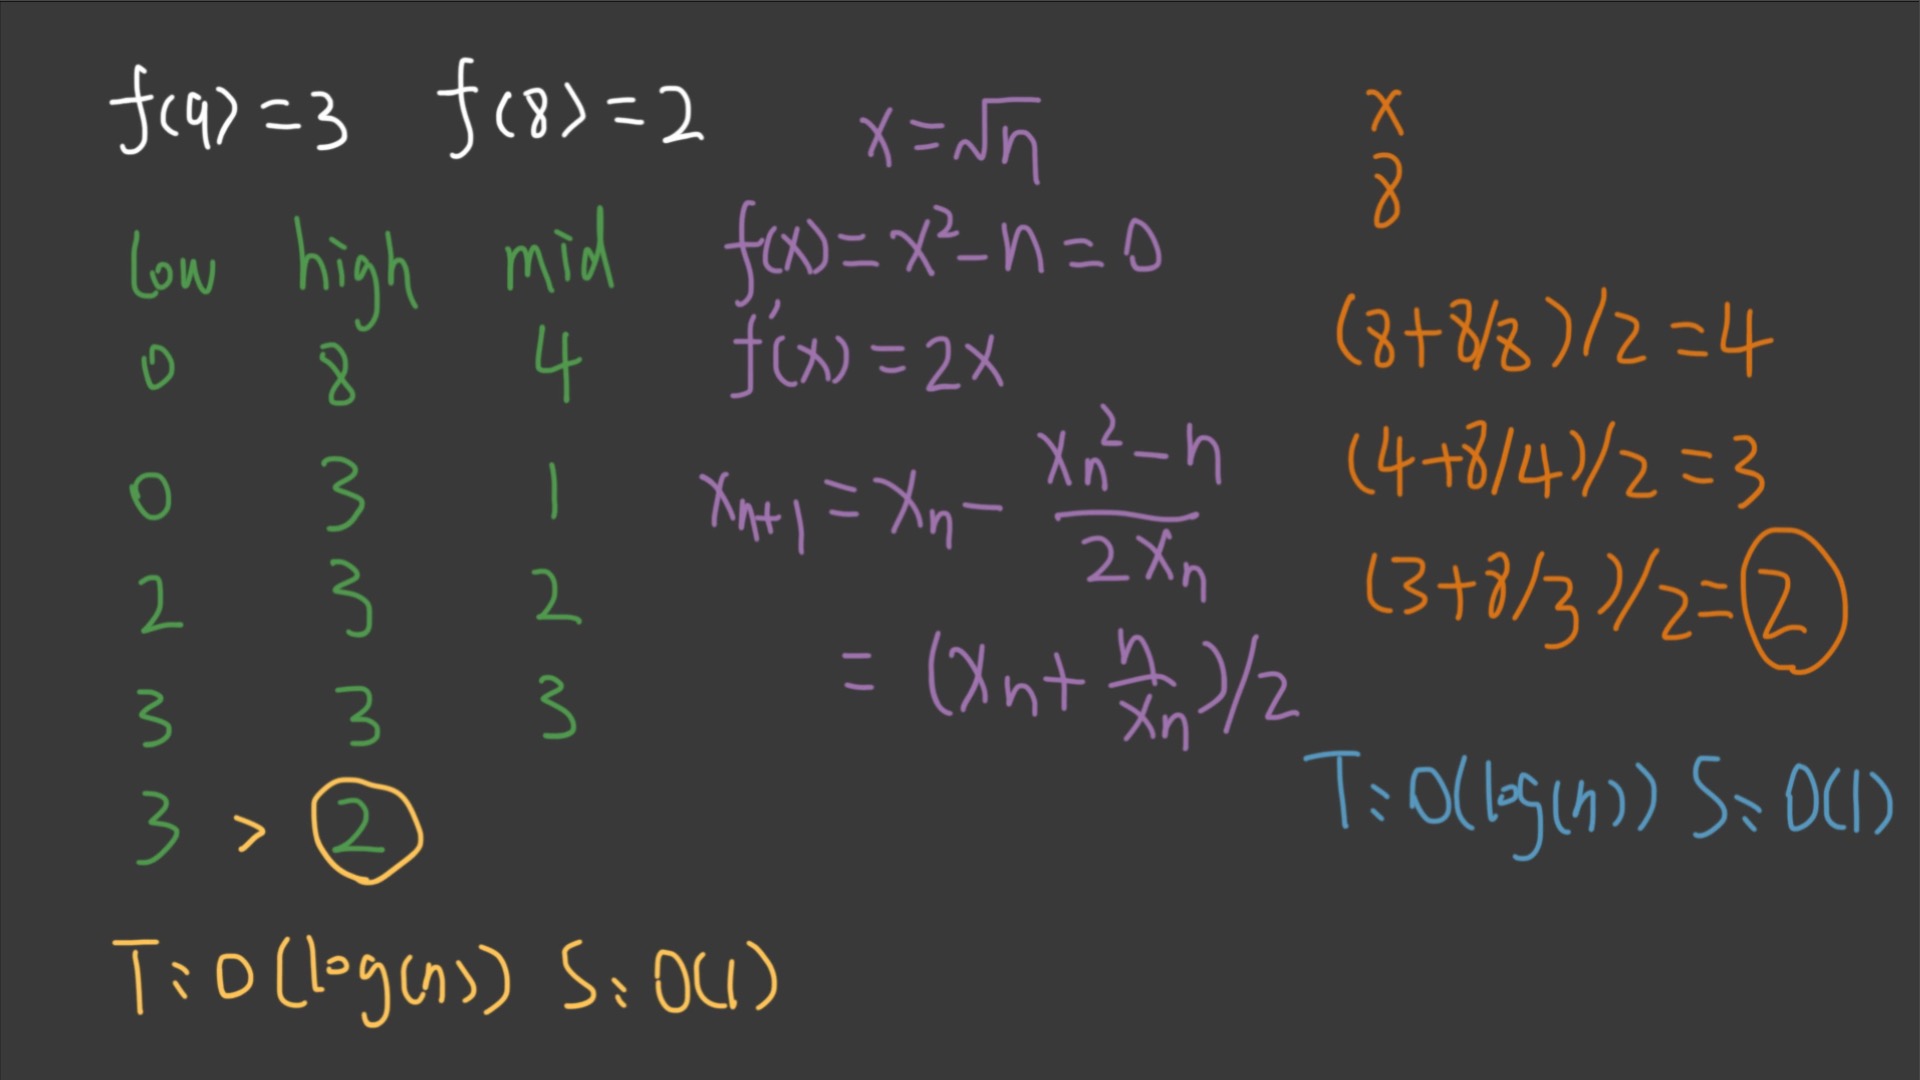 f(9)=3 f(8)=2
low high mid
0 8 4
0 3 1
2 3 2
3 3 3
3 > 2
T: O(log(n)) S: O(1)
x=√n
f(x)=x²-n=0
f'(x)=2x
xₙ₊₁=xₙ-(xₙ²-n)/(2xₙ)
=(xₙ+n/xₙ)/2
x
8
(8+8/8)/2=4
(4+8/4)/2=3
(3+8/3)/2=2
T: O(log(n)) S: O(1)